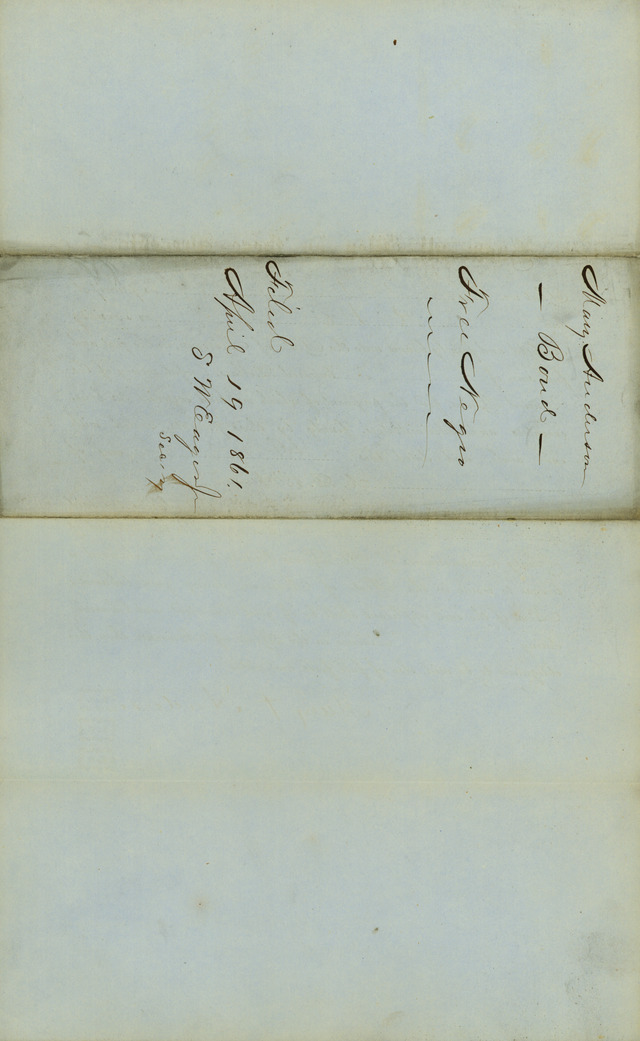 Mary Anderson
— Bond —
Free Negro
Filed
April 19 1861.
S W Eager Jr